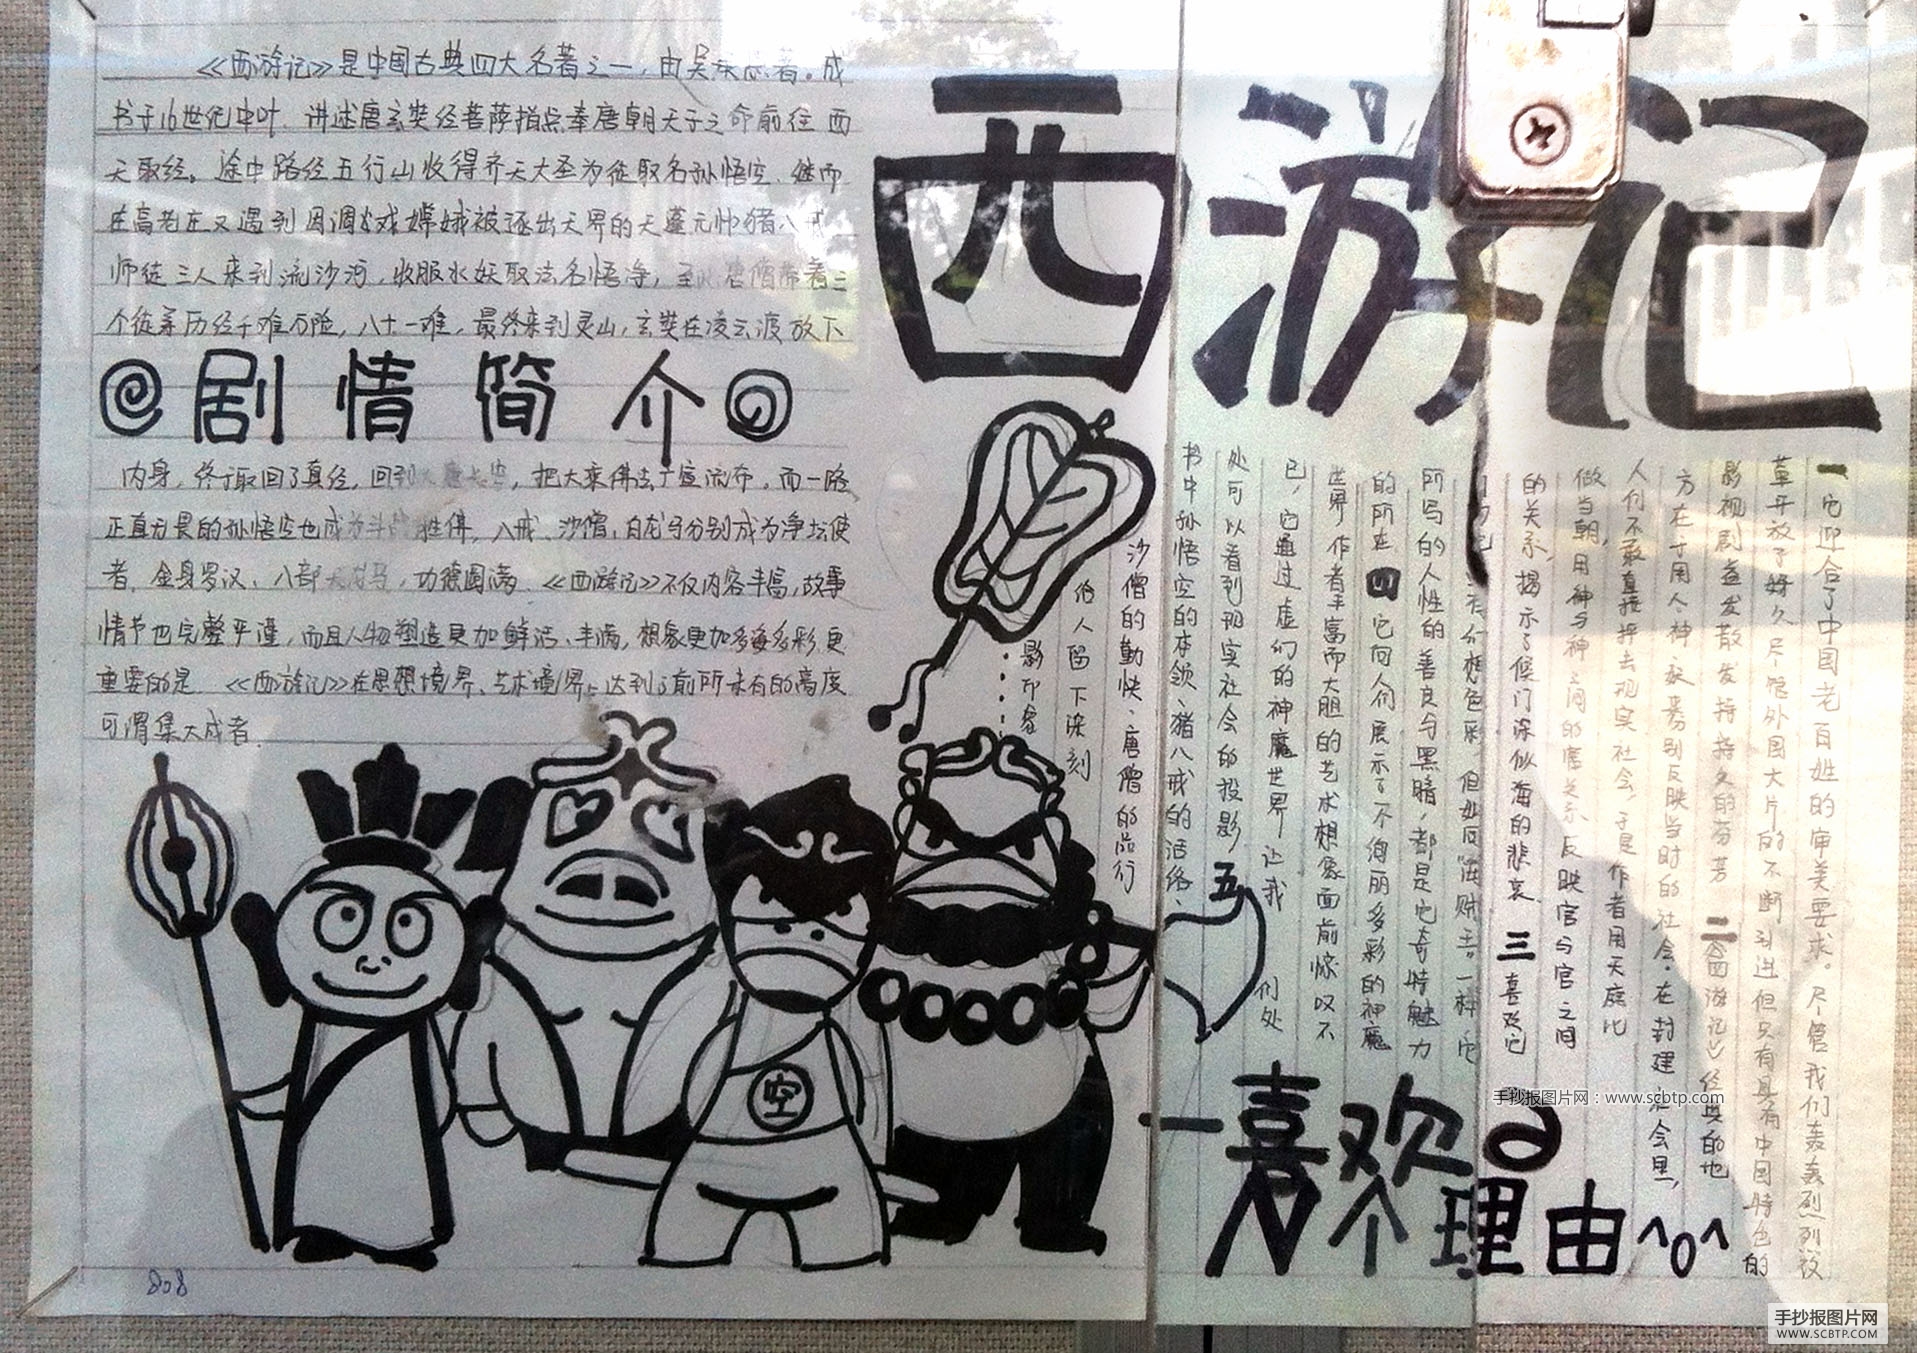 西游记
《西游记》是中国古典四大名著之一,由吴承恩著。成
书于16世纪中叶.讲述唐玄奘经菩萨指点奉唐朝天子之命前往西
天取经。途中路经五行山收得齐天大圣为徒取名孙悟空.继而
在高老庄又遇到因调戏嫦娥被逐出天界的天蓬元帅猪八戒
师徒三人来到流沙河,收服水妖取法名悟净,至此唐僧带着三
个徒弟历经千难万险,八十一难,最终来到灵山,玄奘在凌云渡放下
@剧情简介@
内身,终于取回了真经,回到大唐长安,把大乘佛法广宣流布。而一路
正直无畏的孙悟空也成为斗战胜佛,八戒、沙僧,白龙马分别成为净坛使
者,金身罗汉、八部天龙马,功德圆满.《西游记》不仅内容丰富,故事
情节也完整严谨,而且人物塑造更加鲜活、丰满,想象更加多姿多彩,更
重要的是.《西游记》在思想境界、艺术境界上达到了前所未有的高度
可谓集大成者.
空
808
一它迎合了中国老百姓的审美要求。尽管我们轰轰烈烈改
革开放了好久,尽管外国大片的不断引进但只有具有中国特色的
影视剧益发散发持持久的芬芳 二《西游记》经典的地
方在于用人、神、妖来分别反映当时的社会.在封建社会里,
人们不敢直接抨击现实社会,于是作者用天庭比
做当朝,用神与神之间的关系反映官与官之间
的关系,揭示了候门深似海的悲哀 三喜欢它
所写的人性的善良与黑暗,都是它奇特魅力
的所在 四它向人们展示了不绚丽多彩的神魔
世界,作者丰富而大胆的艺术想象面前惊叹不
已,它通过虚幻的神魔世界让我们处
处可以看到现实社会的投影 五
书中孙悟空的本领、猪八戒的活络、
沙僧的勤快、唐僧的品行
给人留下深刻
影印象
喜欢a
N个理由^o^
手抄报图片网:www.scbtp.com
手抄报图片网
WWW.SCBTP.COM